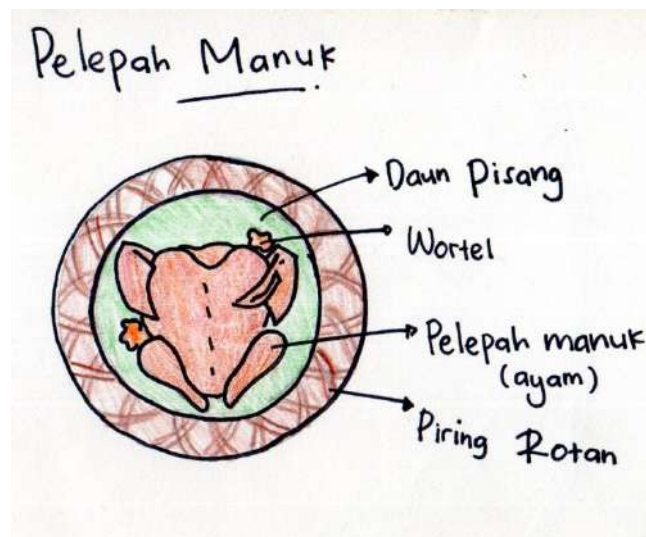 Pelepah Manuk
Daun Pisang
Wortel
Pelepah manuk
(ayam)
Piring Rotan